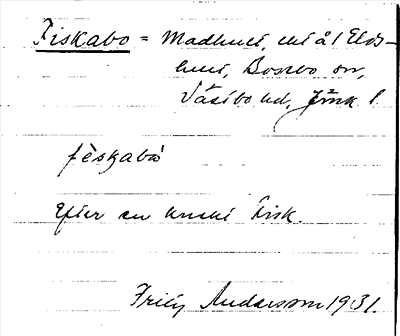 Fiskabo = å 1 Elds-
hult, Bosebo sn,
Västbo hd, Jönk. l.
fèskabo
Efter en knekt Fisk.
Fritz Andersson 1931.